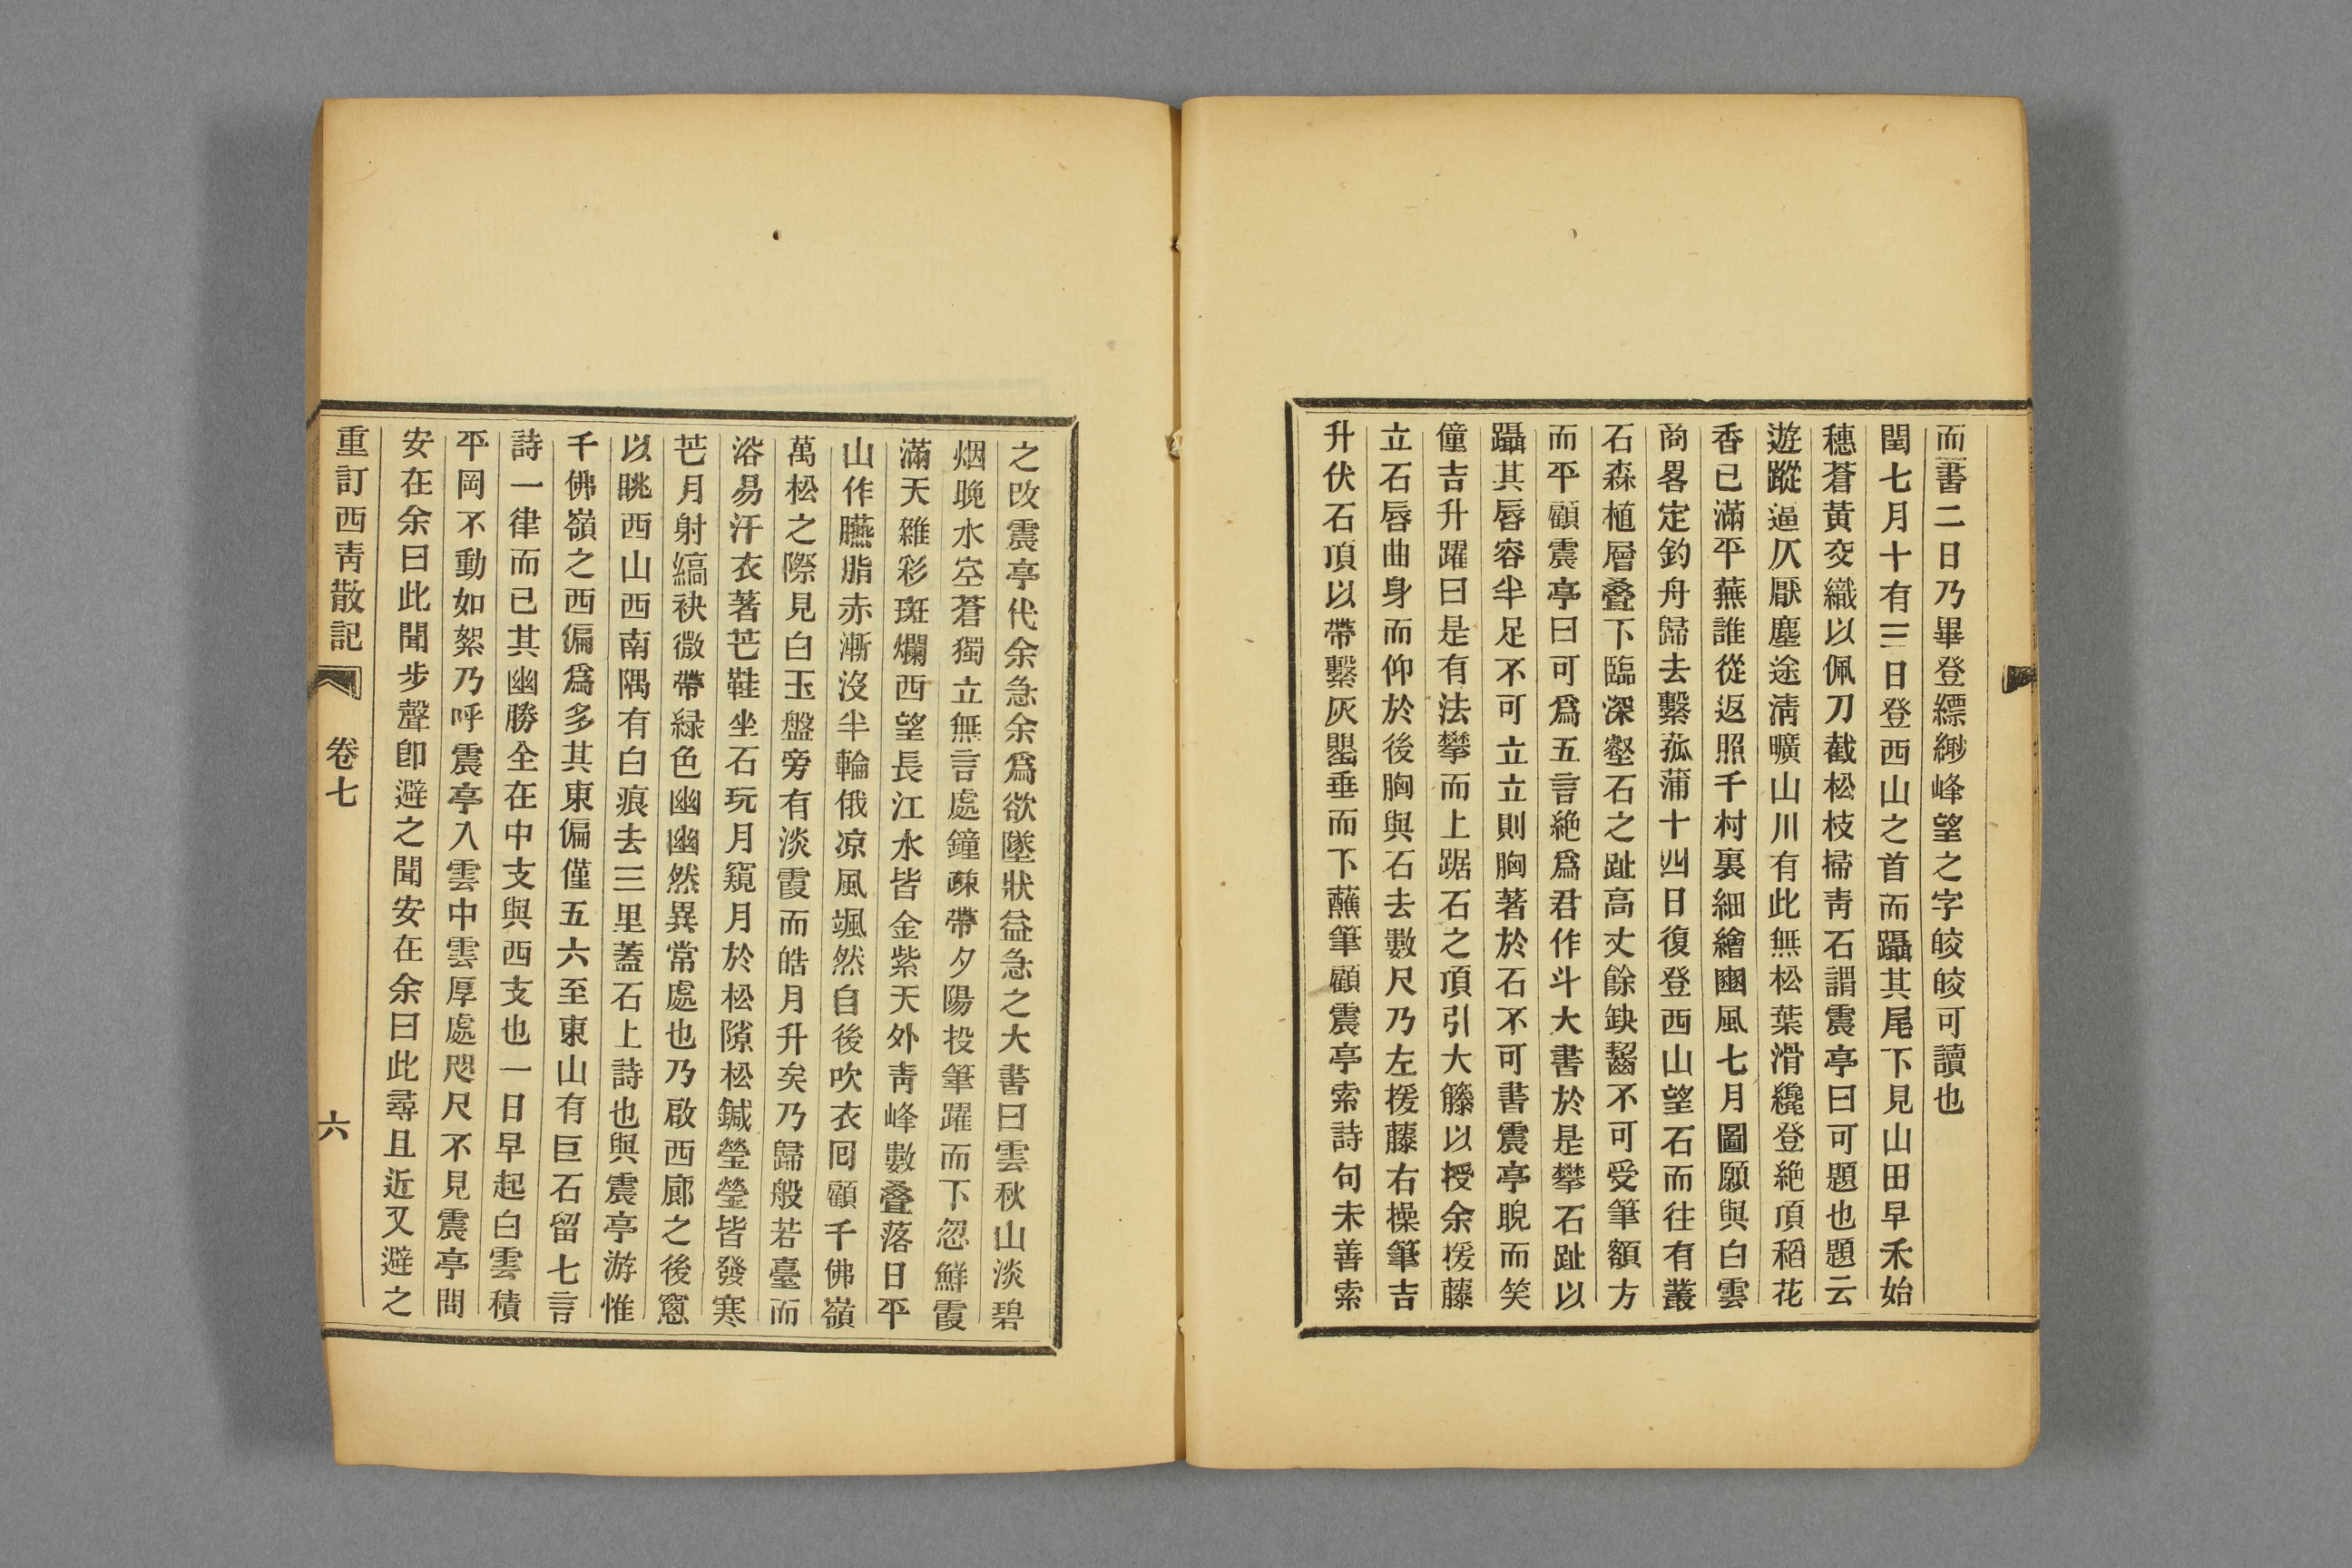 而書二日乃畢登縹緲峰望之字皎皎可讀也
閏七月十有三日登西山之首而躡其尾下見山田早禾始
穗蒼黃交織以佩刀截松枝掃靑石謂震亭曰可題也題云
遊蹤逼仄厭塵途淸曠山川有此無松葉滑纔登絶頂稻花
香已滿平蕪誰從返照千村裏細繪豳風七月圖願與白雲
商畧定釣舟歸去繫菰蒲十四日復登西山望石而往有叢
石森植層叠下臨深壑石之趾高丈餘缺齧不可受筆額方
而平顧震亭曰可爲五言絶爲君作斗大書於是攀石趾以
躡其唇容半足不可立立則胸著於石不可書震亭睨而笑
僮吉升躍曰是有法攀而上踞石之頂引大籐以授余援藤
立石唇曲身而仰於後胸與石去數尺乃左援藤右操筆吉
升伏石頂以帶繫灰罌垂而下蘸筆顧震亭索詩句未善索
之改震亭代余急余爲欲墜狀益急之大書曰雲秋山淡碧
烟晚水空蒼獨立無言處鐘疎帶夕陽投筆躍而下忽鮮霞
滿天雜彩斑爛西望長江水皆金紫天外靑峰數叠落日平
山作臙脂赤漸沒半輪俄凉風颯然自後吹衣囘顧千佛嶺
萬松之際見白玉盤旁有淡霞而皓月升矣乃歸般若臺而
浴易汗衣著芒鞋坐石玩月窺月於松隙松鍼瑩瑩皆發寒
芒月射縞袂微帶緑色幽幽然異常處也乃啟西廊之後窻
以眺西山西南隅有白痕去三里蓋石上詩也與震亭游惟
千佛嶺之西偏爲多其東偏僅五六至東山有巨石留七言
詩一律而已其幽勝全在中支與西支也一日早起白雲積
平岡不動如絮乃呼震亭入雲中雲厚處咫尺不見震亭問
安在余曰此聞步聲卽避之聞安在余曰此尋且近又避之
重訂西靑散記 卷七 六